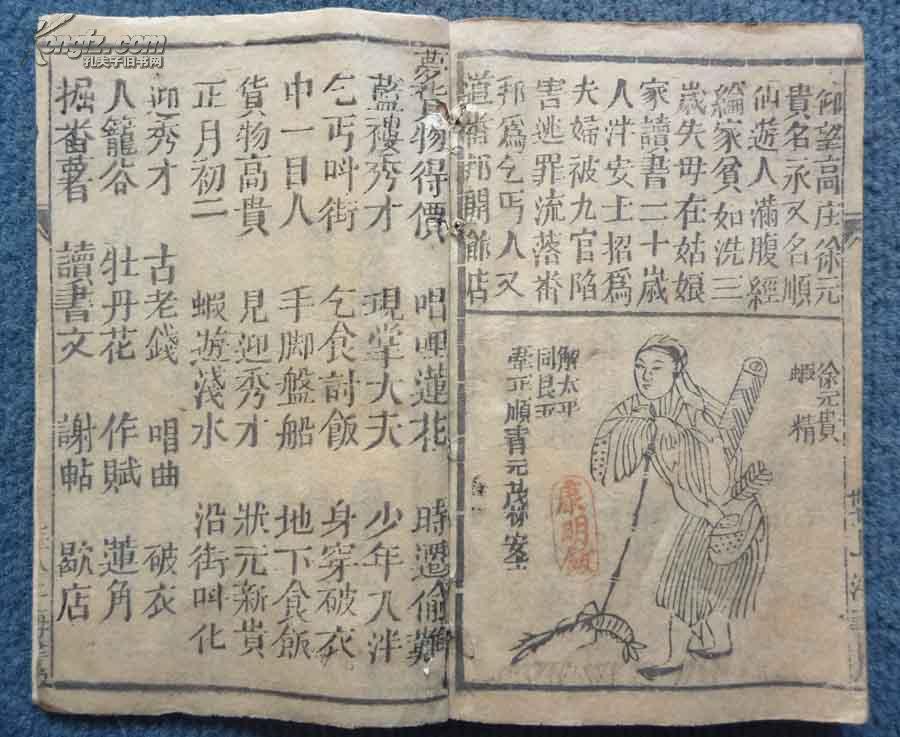 仰望高庄徐元
貴名永又名順
仙遊人滿腹經
綸家貧如洗三
歲失母在姑娘
家讀書二十歲
人泮安士招爲
夫婦被九官陷
害逃罪流落番
邦爲乞丐人又
道番邦開飾店
徐元貴
蝦精
解太平
同艮玉
正順青元茂
康明
夢貨物得價 唱哩蓮花 時遷偷雞
藍縷秀才 現掌大夫 少年入泮
乞丐叫街 乞食討飯 身穿破衣
巾一目人 手脚盤船 地下食飯
貨物高貴 見迎秀才 狀元新貴
正月初二 蝦遊淺水 沿街叫化
迎秀才 古老錢 唱曲 破衣
人籠谷 牡丹花 作賦 蓮角
掘番薯 讀書文 謝帖 歇店
Kongfz.com
孔夫子旧书网